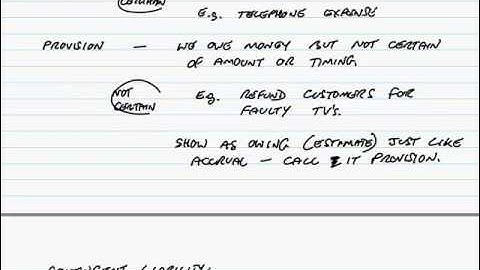 CERTAIN
E.g. TELEPHONE EXPENSE
PROVISION — WE OWE MONEY BUT NOT CERTAIN
OF AMOUNT OR TIMING.
NOT CERTAIN
E.g. REFUND CUSTOMERS FOR
FAULTY TV's.
SHOW AS OWING (ESTAMATE) JUST LIKE
ACCRUAL — CALL IT PROVISION.
CONTINGENT LIABILITY.